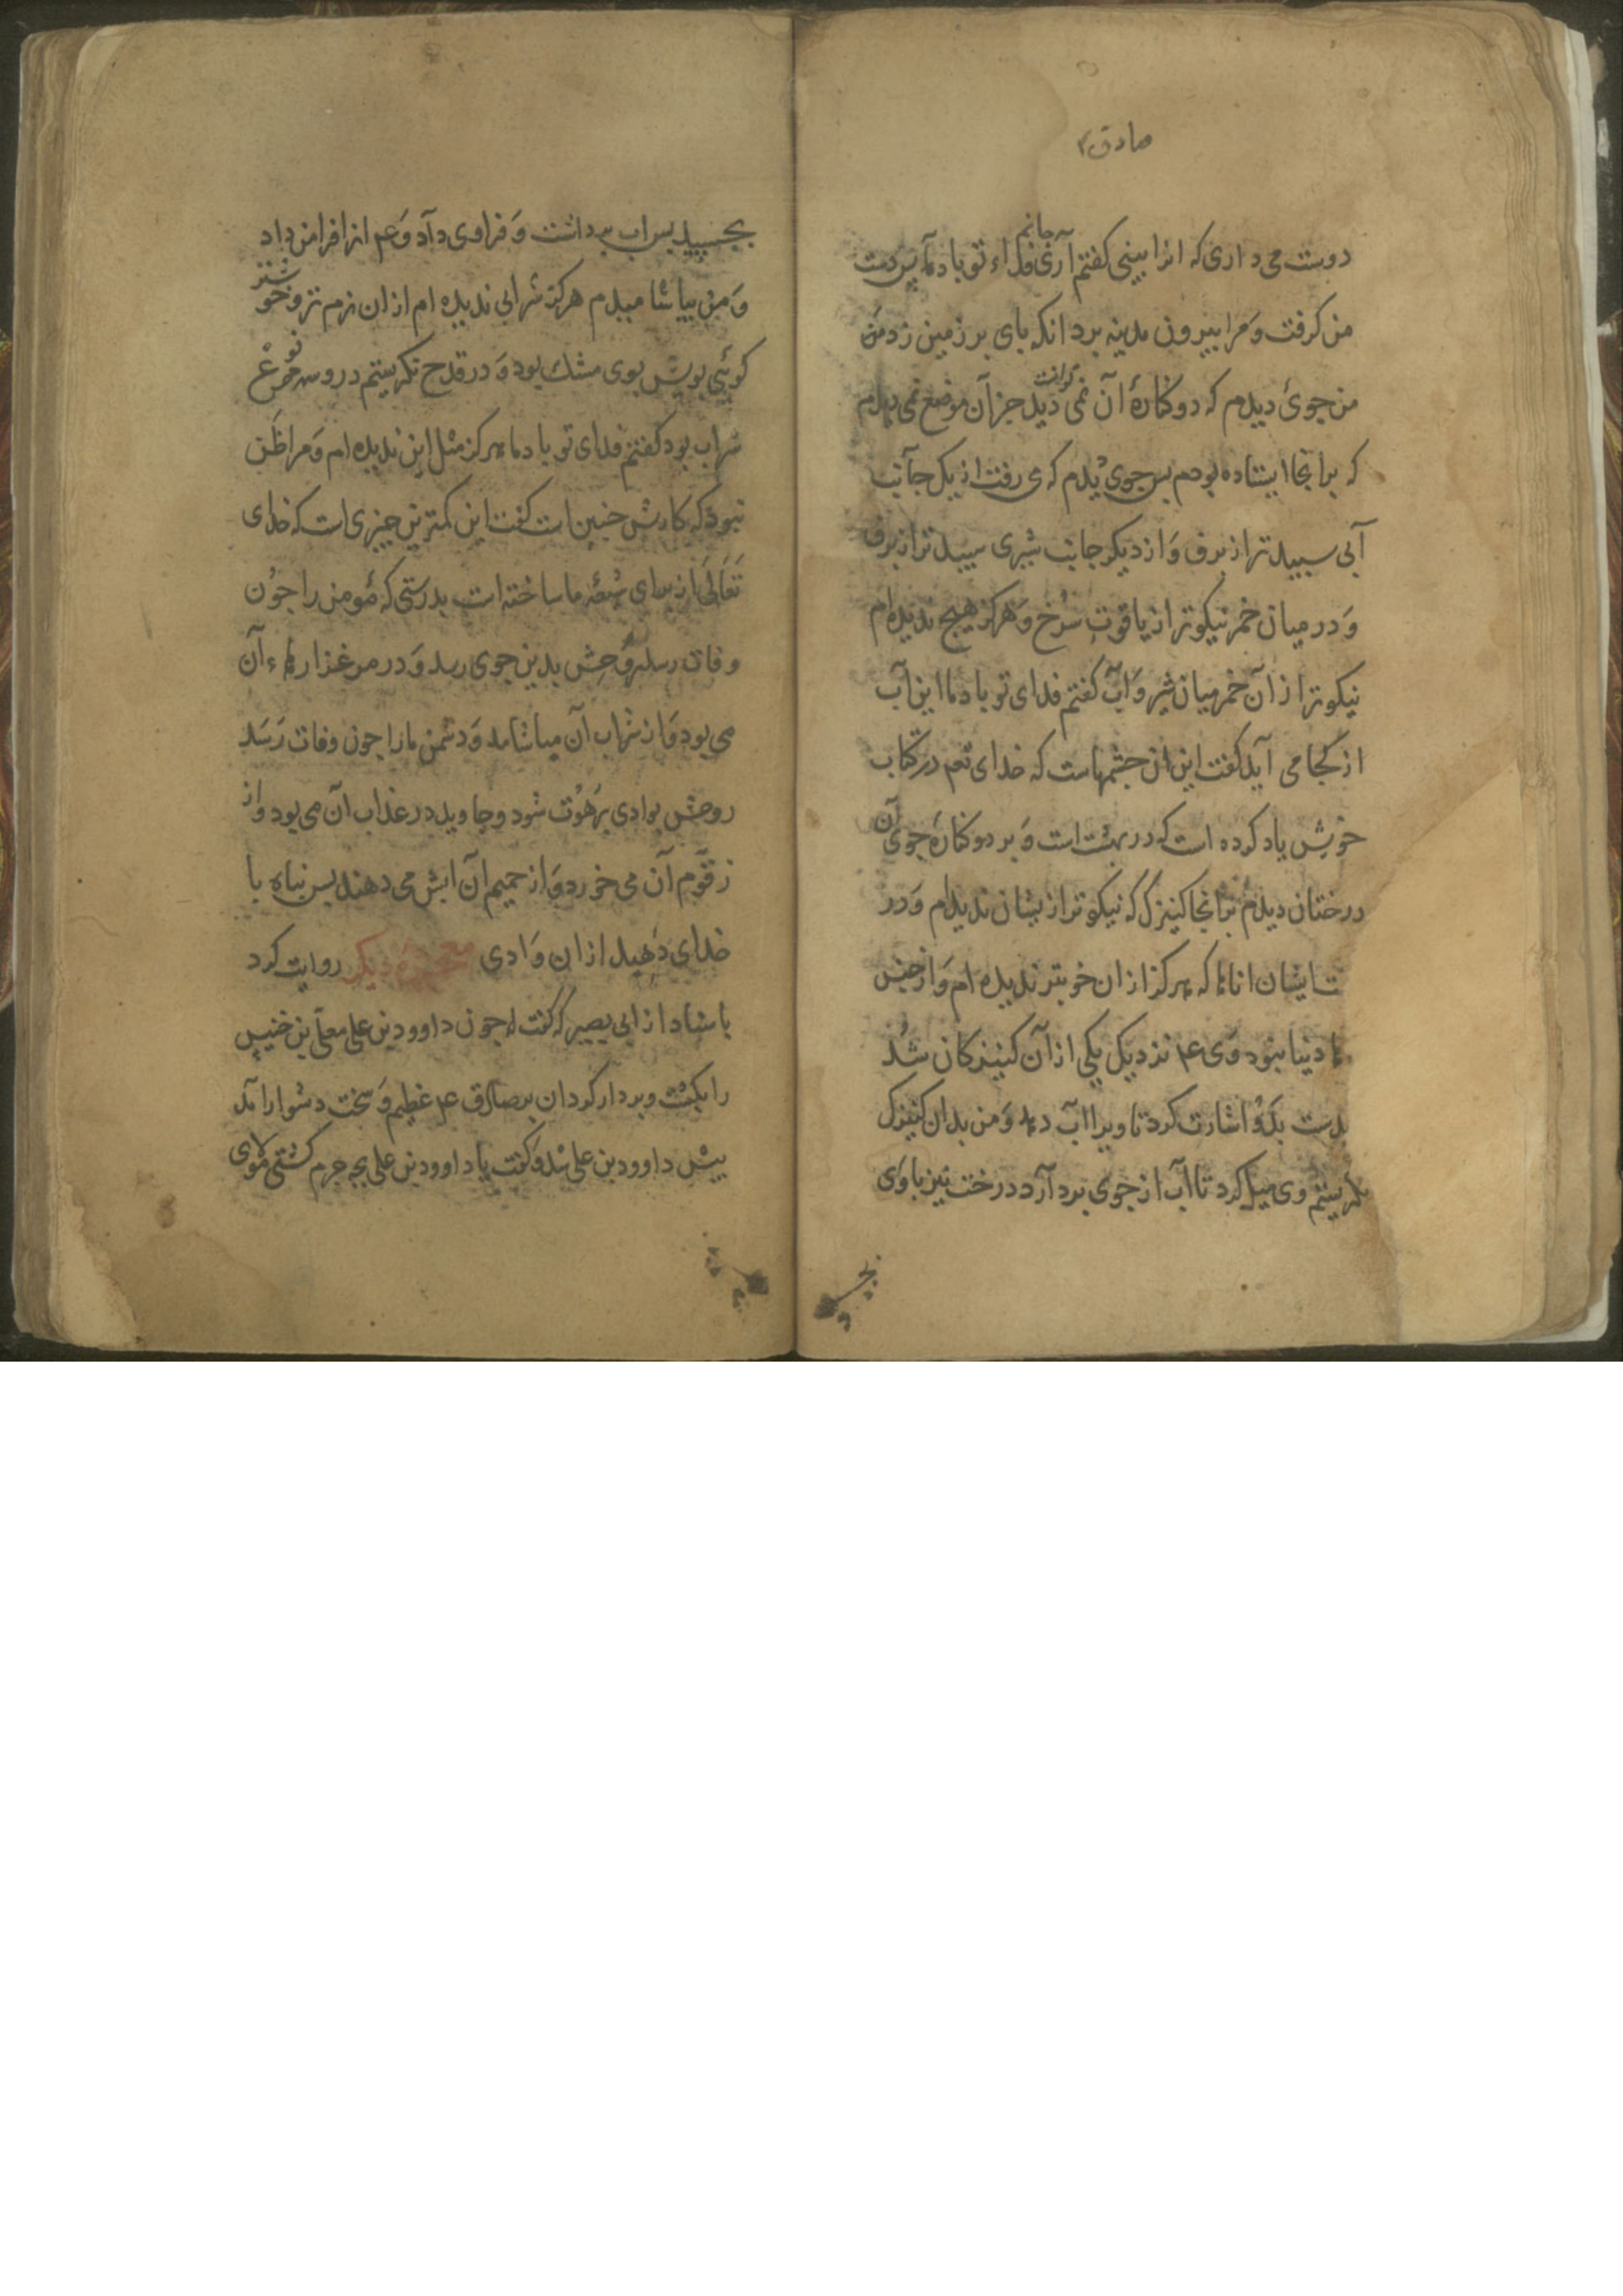 صادق ۴
دوست می داری که انرا ببینی کفتم آری جانم فداء تو باد ما پس دست
من کرفت و مرا بیرون مدینه برد انکه بای بر زمین زد من
من جوئ دیدم که دو کنارۀ آن نمی توانست دید جز آن موضع نمی دیدم
که برانجا ایستاده بودم بس جوی دیدم که می رفت از یک جانب
آبی سبید تر از برف وَ از دیکر جانب شیری سبید تر از برف
وَ در میان خمر نیکوتر از یاقوت سرخ وَ هرکز هیچ ندیده ام
نیکوتر از آن خمر میان شیر وَ آب کفتم فدای تو باد ما این آب
از کجا می آید کفت این از جشمهاست که خدای تعم در کتاب
خویش یاد کرده است که در بهشت است وَ بر دو کنارۀ جوی آن
درختان دیدم برانجا کنیزک که نیکوتر از یشان ندیدم وَ در
ت ایشان اناءها که هرکز از ان خوبتر ندیده ام وَ از جنس
دنیا نبود وَی ۴ نزدیک یکی از آن کنیزکان شد
بدست بدو اشارت کرد تا ویرا آب دهد وَ من بدان کنیزک
نکریستم وی میل کرد تا آب از جوی بردآرد درخت نیز با وَی
بجسبید
بجسبید بس اب برداشت وَ فراوی دآد وَ ۴ انرا فرا من داد
وَ من بیاشامیدم هرکز شرابی ندیده ام از ان نرم تر و خوشتر
کوئی بویش بوی مشک بود وَ در قدح نکریستم در وسه نوع
شراب بود کفتم فدای تو باد ما هرکز مثل این ندیده ام وَ مرا ظن
نبود که کارش جنین است کفت این کمترین جیزی است که خدای
تَعَالَی از برای شیعۀ ما ساخته است بدرستی که مُومن را جوُن
وفات رسد روُحِش بدین جوی رسد وَ در مرغزارهاء آن
می بود وَ از شراب آن میاشامد وَ دشمن ما را جون وفات رَسَد
روحش بوادی بَرهُوُت شود و جاوید در عذاب آن می بود و از
زقّوم آن می خورد وَ از حمیم آن ابش می دهند بس بناه با
خدای دَهید از ان وَادی معجزۀ دیکر روایت کرد
باسناد از ابی بصیر که کفت له جون داوود بن علی معلّی بن خنیس
را بکشت و بردار کرد ان بر صادق ۴ عظیم وَ سخت دشوار آمد
بیش داوود بن علی شد وَ کفت یا داوود بن علی بجه جرم کشتی مولای